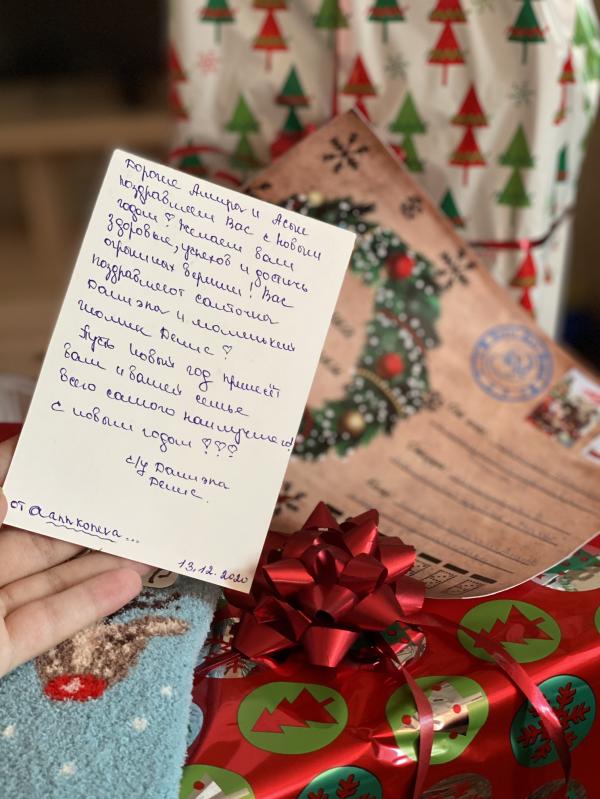 Дорогие Амира и Асын
поздравляем Вас с новым
годом ♡ Желаем вам
здоровья, успехов и достичь
огромных вершин! Вас
поздравляют санточка
Данэла и маленький
гномик Денис ♡
Пусть новый год принесёт
вам и вашей семье
всего самого наилучшего!
с новым годом ♡♡♡
с/у Данэла
Денис.
от @annkoneva...
13.12.2020